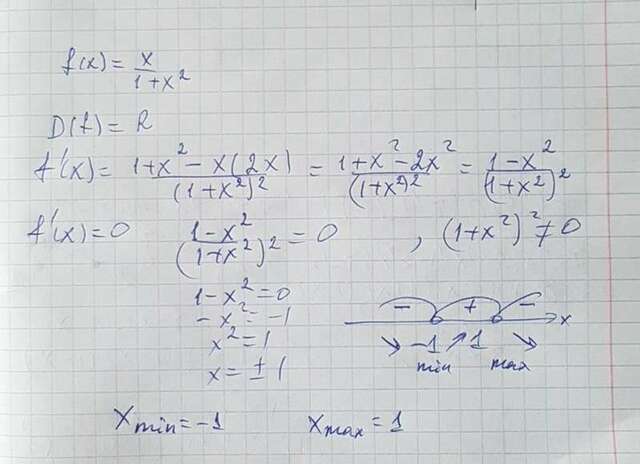 f(x) = x/(1+x²)
D(f) = R
f'(x) = (1+x² - x(2x))/(1+x²)² = (1+x²-2x²)/(1+x²)² = (1-x²)/(1+x²)²
f'(x) = 0 (1-x²)/(1+x²)² = 0 , (1+x²)² ≠ 0
1-x² = 0
-x² = -1
x² = 1
x = ±1
- + - x
↘ -1 ↗ 1 ↘
min max
x min = -1 x max = 1